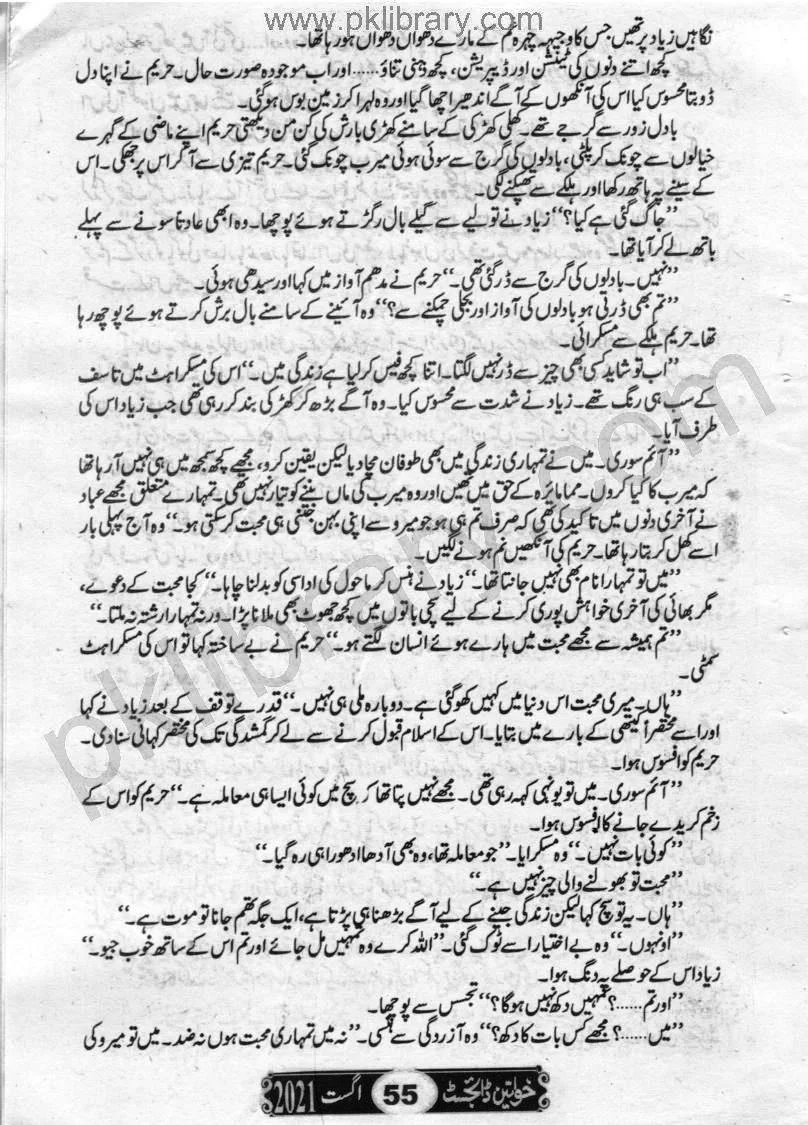 www.pklibrary.com
نگاہیں زیاد پر تھیں جس کا وجیہہ چہرہ غم کے مارے دھواں دھواں ہو رہا تھا۔
کچھ اتنے دنوں کی ٹینشن اور ڈیپریشن، کچھ ذہنی تناؤ...... اور اب موجودہ صورت حال۔ حریم نے اپنا دل
ڈوبتا محسوس کیا اس کی آنکھوں کے آگے اندھیرا چھا گیا اور وہ لہرا کر زمین بوس ہو گئی۔
بادل زور سے گرجے تھے۔ کھلی کھڑکی کے سامنے کھڑی بارش کی کن من دیکھتی حریم اپنے ماضی کے گہرے
خیالوں سے چونک کر پلٹی، بادلوں کی گرج سے سوئی ہوئی میرب چونک گئی۔ حریم تیزی سے آ کر اس پر جھکی۔ اس
کے سینے پہ ہاتھ رکھا اور ہلکے سے تھپکنے لگی۔
’’جاگ گئی ہے کیا؟‘‘ زیاد نے تولیے سے گیلے بال رگڑتے ہوئے پوچھا۔ وہ ابھی عادتاً سونے سے پہلے
باتھ لے کر آیا تھا۔
’’نہیں۔ بادلوں کی گرج سے ڈر گئی تھی۔‘‘ حریم نے مدھم آواز میں کہا اور سیدھی ہوئی۔
’’تم بھی ڈرتی ہو بادلوں کی آواز اور بجلی چمکنے سے؟‘‘ وہ آئینے کے سامنے بال برش کرتے ہوئے پوچھ رہا
تھا۔ حریم ہلکے سے مسکرائی۔
’’اب تو شاید کسی بھی چیز سے ڈر نہیں لگتا۔ اتنا کچھ فیس کر لیا ہے زندگی میں۔‘‘ اس کی مسکراہٹ میں تاسف
کے سب ہی رنگ تھے۔ زیاد نے شدت سے محسوس کیا۔ وہ آگے بڑھ کر کھڑکی بند کر رہی تھی جب زیاد اس کی
طرف آیا۔
’’آئم سوری۔ میں نے تمہاری زندگی میں بھی طوفان مچا دیا لیکن یقین کرو، مجھے کچھ سمجھ میں ہی نہیں آ رہا تھا
کہ میرب کا کیا کروں۔ مما مائرہ کے حق میں تھیں اور وہ میرب کی ماں بننے کو تیار نہیں تھی۔ تمہارے متعلق مجھے عباد
نے آخری دنوں میں تاکید کی تھی کہ صرف تم ہی ہو جو میرو سے اپنی بہن جتنی ہی محبت کر سکتی ہو۔‘‘ وہ آج پہلی بار
اسے کھل کر بتا رہا تھا۔ حریم کی آنکھیں نم ہونے لگیں۔
’’میں تو تمہارا نام بھی نہیں جانتا تھا۔‘‘ زیاد نے ہنس کر ماحول کی اداسی کو بدلنا چاہا۔ ’’کجا محبت کے دعوے،
مگر بھائی کی آخری خواہش پوری کرنے کے لیے سچی باتوں میں کچھ جھوٹ بھی ملانا پڑا۔ ورنہ تمہارا رشتہ نہ ملتا۔‘‘
’’تم ہمیشہ سے مجھے محبت میں ہارے ہوئے انسان لگتے ہو۔‘‘ حریم نے بے ساختہ کہا تو اس کی مسکراہٹ
سمٹی۔
’’ہاں۔ میری محبت اس دنیا میں کہیں کھو گئی ہے۔ دوبارہ ملی ہی نہیں۔‘‘ قدرے توقف کے بعد زیاد نے کہا
اور اسے مختصراً کیتھی کے بارے میں بتایا۔ اس کے اسلام قبول کرنے سے لے کر گمشدگی تک کی مختصر کہانی سنا دی۔
حریم کو افسوس ہوا۔
’’آئم سوری۔ میں تو یونہی کہہ رہی تھی۔ مجھے نہیں پتا تھا کہ سچ میں کوئی ایسا ہی معاملہ ہے۔‘‘ حریم کو اس کے
زخم کریدے جانے کا افسوس ہوا۔
’’کوئی بات نہیں۔‘‘ وہ مسکرایا۔ ’’جو معاملہ تھا، وہ بھی آدھا ادھورا ہی رہ گیا۔‘‘
’’محبت تو بھولنے والی چیز نہیں ہے۔‘‘
’’ہاں۔ یہ تو سچ کہا لیکن زندگی جینے کے لیے آگے بڑھنا ہی پڑتا ہے، ایک جگہ تھم جانا تو موت ہے۔‘‘
’’اونہوں۔‘‘ وہ بے اختیار اسے ٹوک گئی۔ ’’اللہ کرے وہ تمہیں مل جائے اور تم اس کے ساتھ خوب جیو۔‘‘
زیاد اس کے حوصلے پہ دنگ ہوا۔
’’اور تم......؟ تمہیں دکھ نہیں ہوگا؟‘‘ تجسس سے پوچھا۔
’’میں......؟ مجھے کس بات کا دکھ؟‘‘ وہ آزردگی سے ہنسی۔ ’’نہ میں تمہاری محبت ہوں نہ ضد۔ میں تو میرو کی
خواتین ڈائجسٹ 55 اگست 2021
pklibrary.com